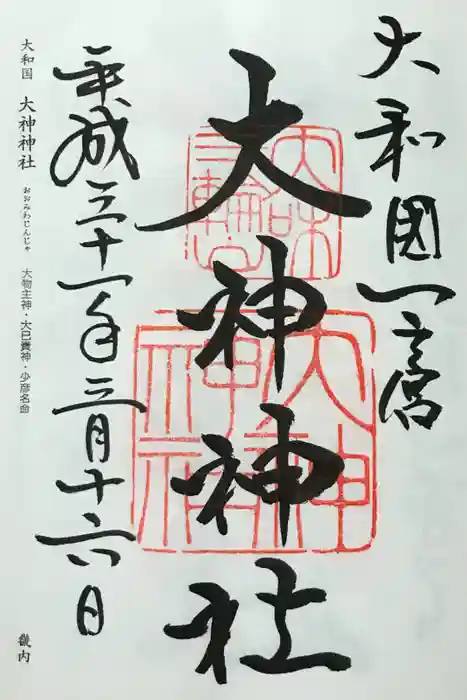 大和國一宮
大神神社
平成三十一年三月十六日
大和国 大神神社 おおみわじんじゃ 大物主神・大己貴神・少彦名命 畿内
三輪
大神神社